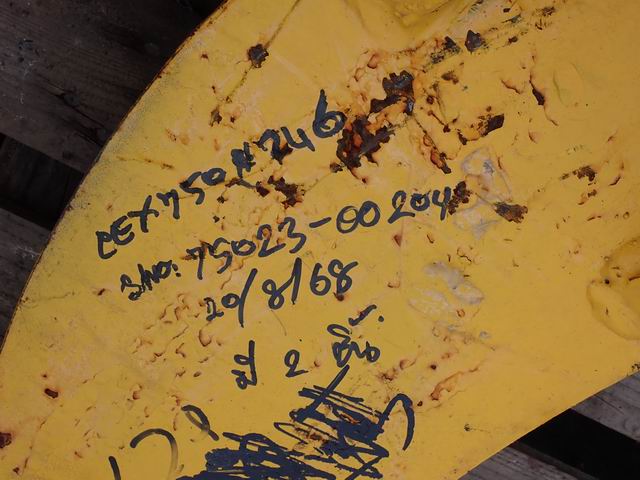 CEX750#246
S/NO. 75023-00204
20/8/68
มี 2 ชิ้น